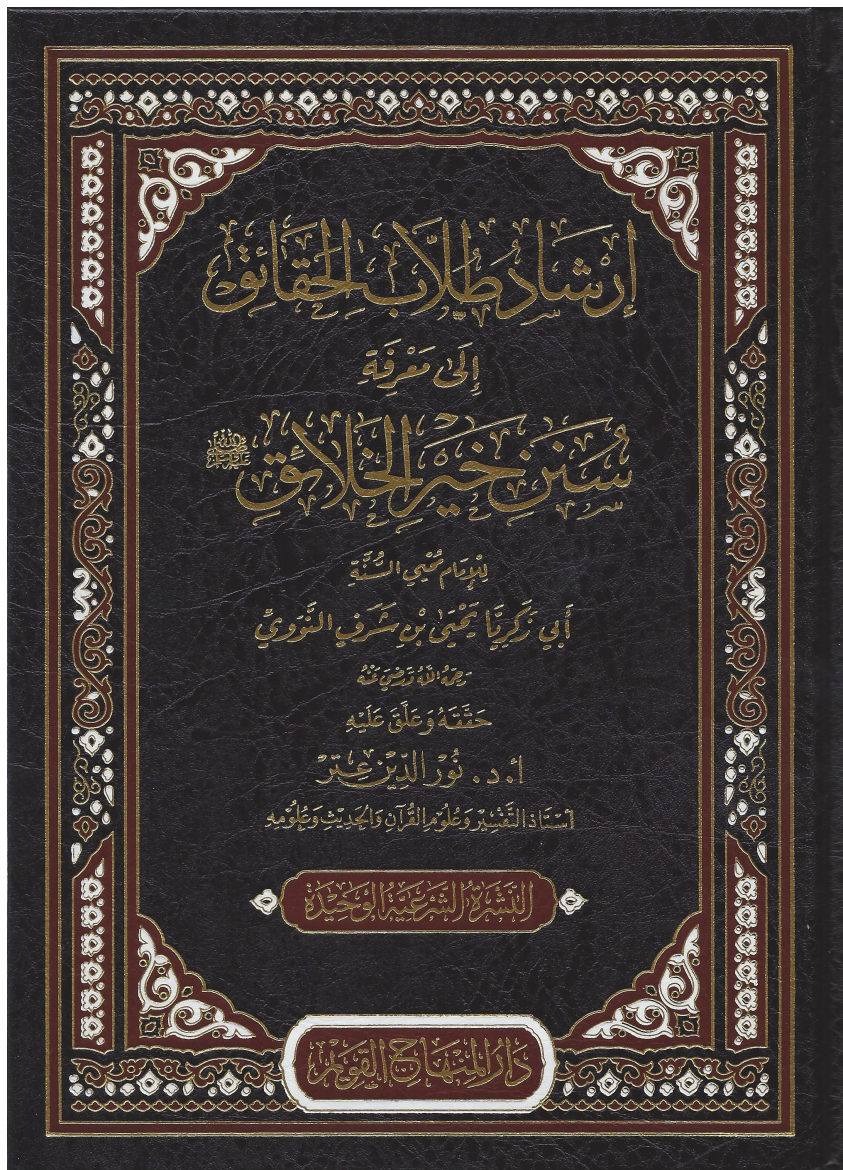 إِرْشَادُ طُلَّابِ الحَقَائِقِ
إِلَى مَعْرِفَةِ
سُنَنِ خَيْرِ الخَلَائِقِ ﷺ
لِلْإِمَامِ مُحْيِي السُّنَّةِ
أَبِي زَكَرِيَّا يَحْيَى بْنِ شَرَفٍ النَّوَوِيِّ
رَحِمَهُ اللهُ وَرَضِيَ عَنْهُ
حَقَّقَهُ وَعَلَّقَ عَلَيْهِ
أ. د. نُوْرُ الدِّيْن عِتْر
أُسْتَاذُ التَّفْسِيْرِ وَعُلُوْمِ القُرْآنِ وَالحَدِيْثِ وَعُلُوْمِهِ
النَّشْرَةُ الشَّرْعِيَّةُ الوَحِيْدَةُ
دَارُ المِنْهَاجِ القَوِيْمِ